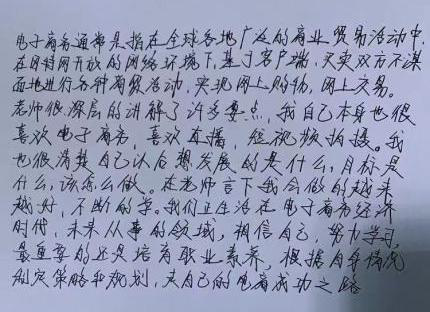 电子商务通常是指在全球各地广泛的商业贸易活动中,
在因特网开放的网络环境下,基于客户端,买卖双方不谋
面地进行各种商贸活动,实现网上购物,网上交易。
老师很深层的讲解了许多要点,我自己本身也很
喜欢电子商务,喜欢直播,短视频拍摄。我
也很清楚自己以后想发展的是什么,目标是
什么,该怎么做。在老师言下我会做的越来
越好,不断的学。我们正生活在电子商务经济
时代,未来从事的领域,相信自己,努力学习,
最重要的还是培育职业素养,根据自身情况
制定策略和规划,走自己的电商成功之路